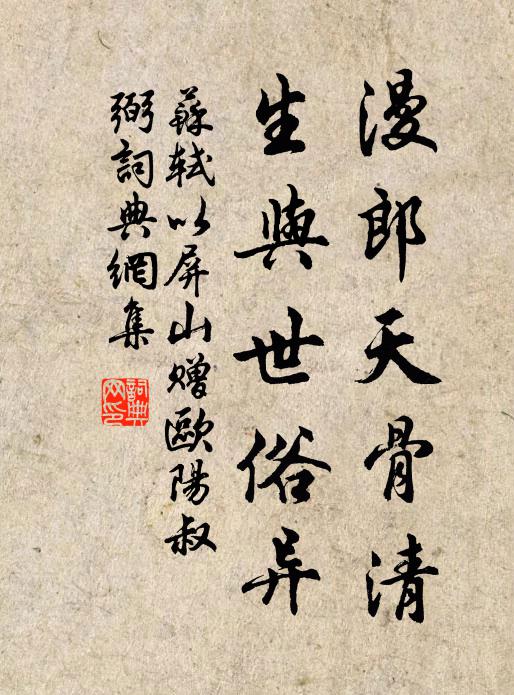 漫郎天骨清
生與世俗异
蘇軾以屏山贈歐陽叔
弼詞典網集
詞典
网印